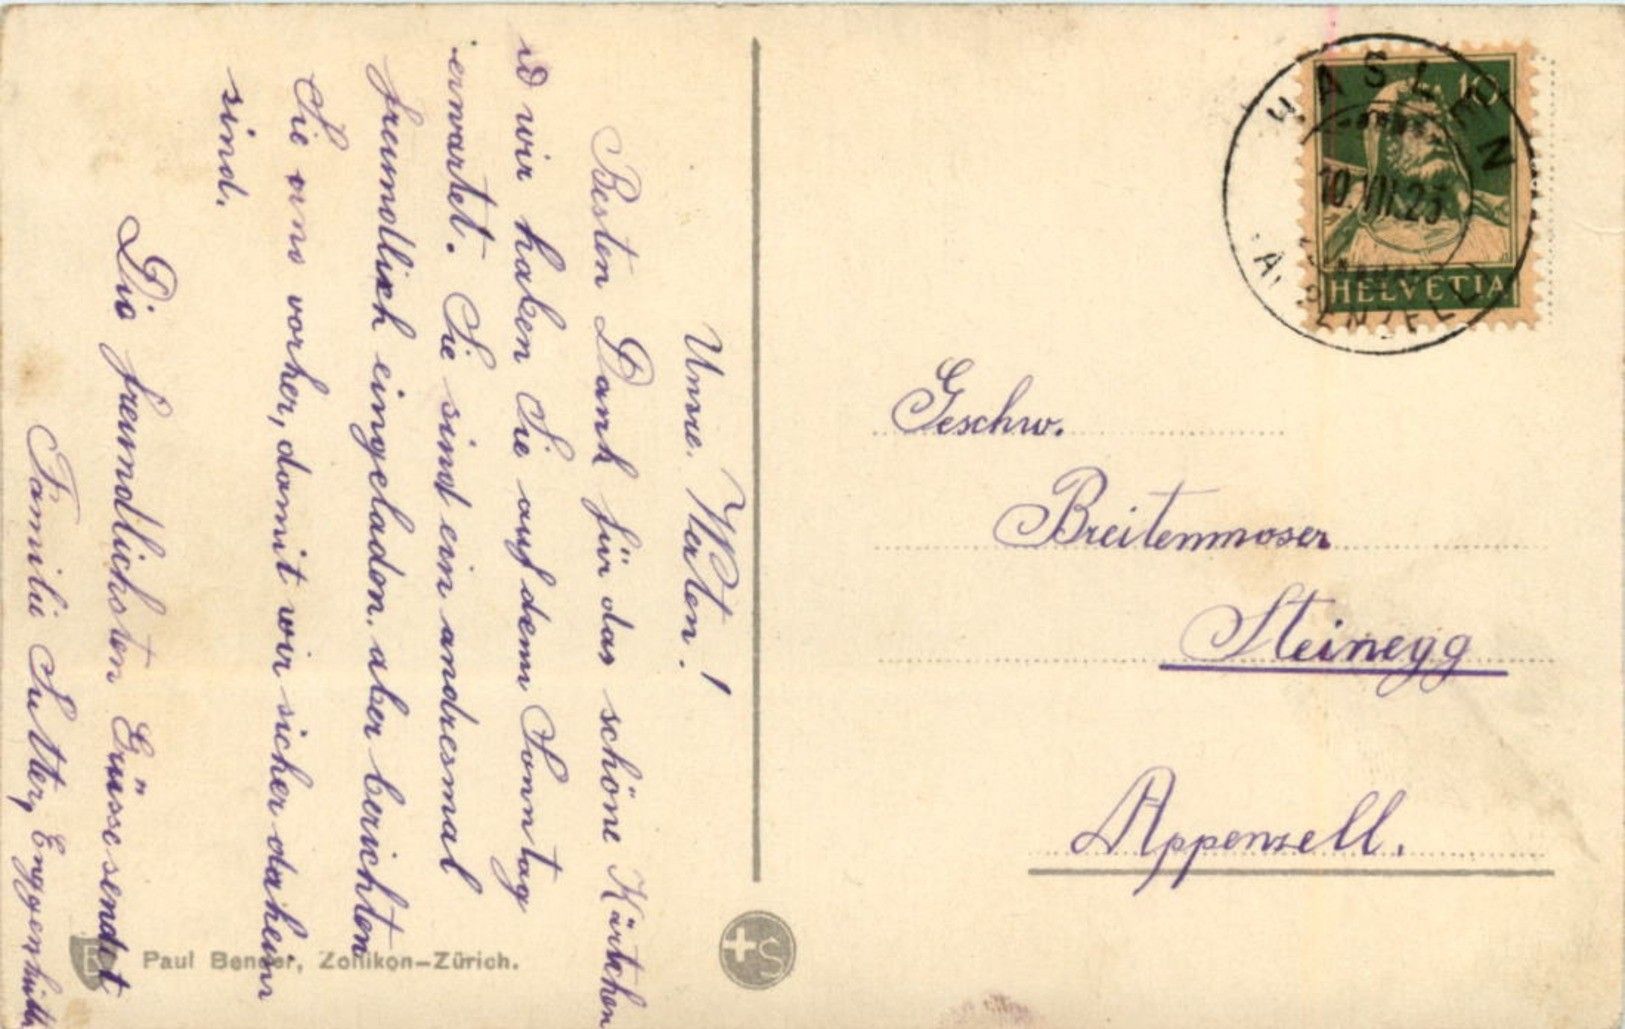 Unsre. Werten!
Besten Dank für das schöne Kärtchen
wir haben Sie auf dem Sonntag
erwartet. Sie sind ein andresmal
freundlich eingeladen. aber berichten
Sie uns vorher, damit wir sicher daheim
sind.
Die freundlichsten Grüsse sendet
Familie Sutter, Enggenhütten
Paul Bender, Zollikon-Zürich.
HASLEN
10.VII.23
(APPENZELL)
10
HELVETIA
Geschw.
Breitenmoser
Steinegg
Appenzell.